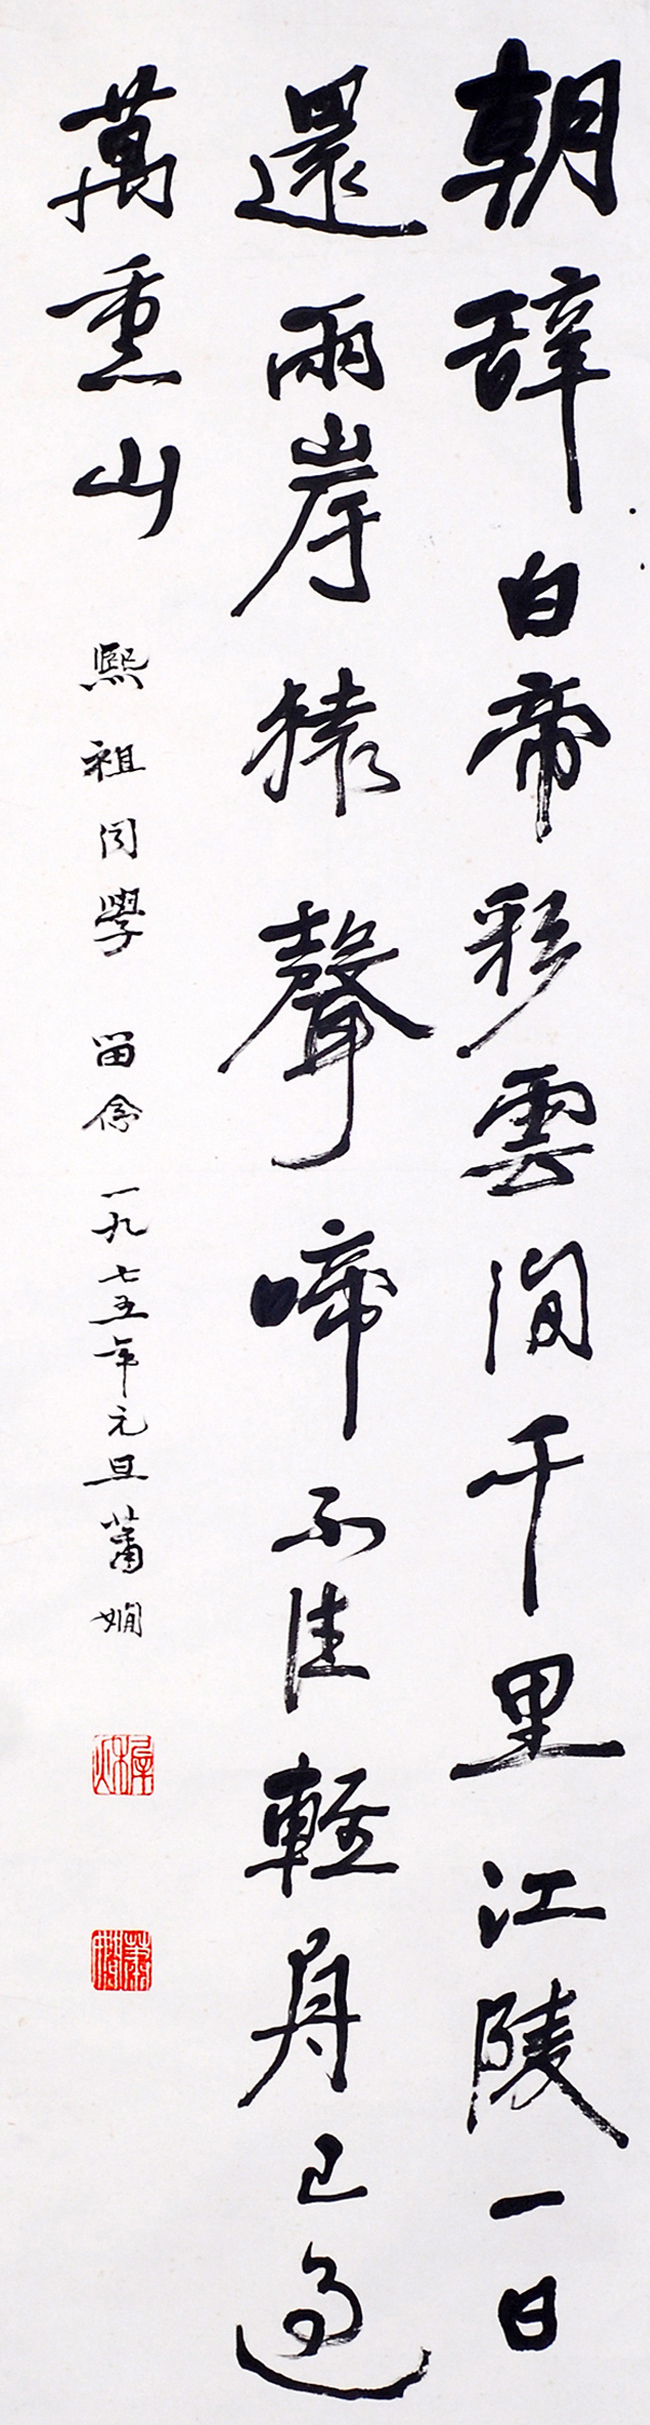 朝辞白帝彩雲間千里江陵一日
還兩岸猿聲啼不住輕舟已過
萬重山
熙祖同學 留念 一九七五年元旦蕭嫻
蕭嫻